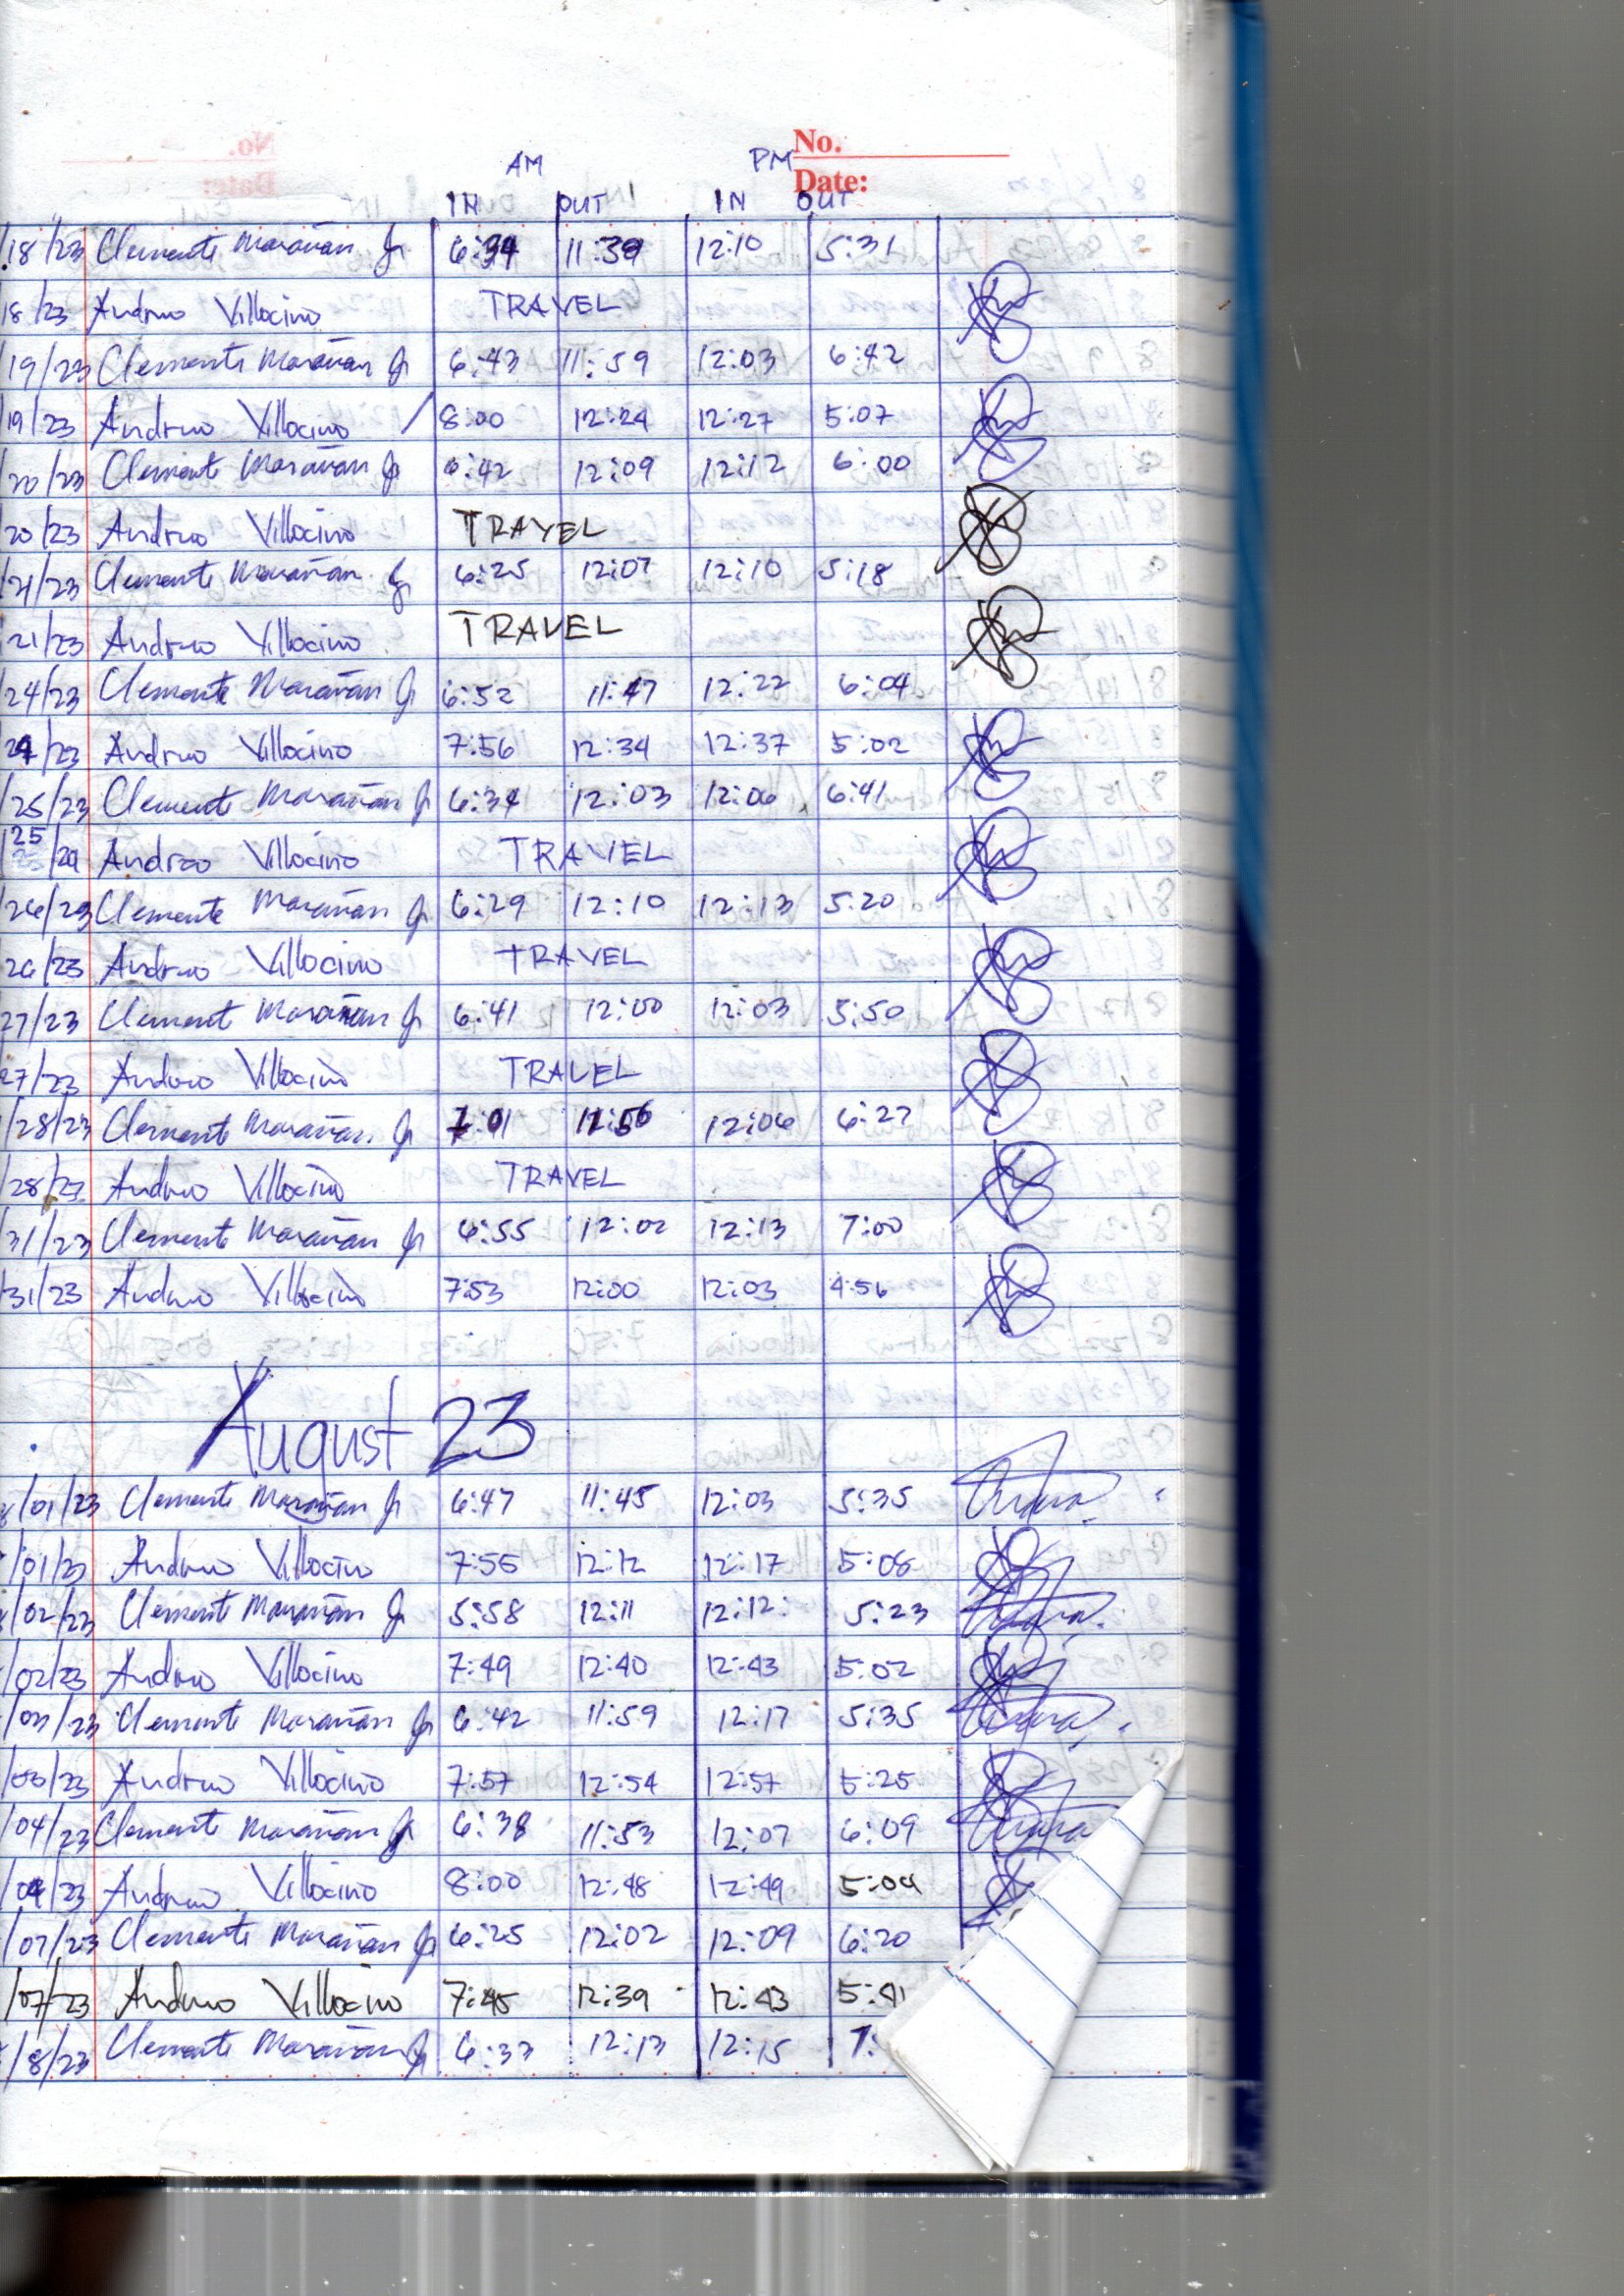 No.
Date:
AM PM
IN OUT IN OUT
18/23 Clemente Marañan Jr 6:34 11:39 12:10 5:31
18/23 Andrew Villocino TRAVEL
19/23 Clemente Marañan Jr 6:43 11:59 12:03 6:42
19/23 Andrew Villocino / 8:00 12:24 12:27 5:07
20/23 Clemente Marañan Jr 6:42 12:09 12:12 6:00
20/23 Andrew Villocino TRAVEL
21/23 Clemente Marañan Jr 6:25 12:07 12:10 5:18
21/23 Andrew Villocino TRAVEL
24/23 Clemente Marañan Jr 6:52 11:47 12:22 6:04
24/23 Andrew Villocino 7:56 12:34 12:37 5:02
25/23 Clemente Marañan Jr 6:34 12:03 12:06 6:41
25/23 Andrew Villocino TRAVEL
26/23 Clemente Marañan Jr 6:29 12:10 12:13 5:20
26/23 Andrew Villocino TRAVEL
27/23 Clemente Marañan Jr 6:41 12:00 12:03 5:50
27/23 Andrew Villocino TRAVEL
/28/23 Clemente Marañan Jr 7:01 11:56 12:06 6:27
/28/23 Andrew Villocino TRAVEL
31/23 Clemente Marañan Jr 6:55 12:02 12:13 7:00
31/23 Andrew Villocino 7:53 12:00 12:03 4:56
August 23
8/01/23 Clemente Marañan Jr 6:47 11:45 12:03 5:35
/01/23 Andrew Villocino 7:55 12:12 12:17 5:08
/02/23 Clemente Marañan Jr 5:58 12:11 12:12 5:23
/02/23 Andrew Villocino 7:49 12:40 12:43 5:02
/03/23 Clemente Marañan Jr 6:42 11:59 12:17 5:35
/03/23 Andrew Villocino 7:57 12:54 12:57 5:25
/04/23 Clemente Marañan Jr 6:38 11:53 12:07 6:09
/04/23 Andrew Villocino 8:00 12:48 12:49 5:04
/07/23 Clemente Marañan Jr 6:25 12:02 12:09 6:20
/07/23 Andrew Villocino 7:45 12:39 12:43 5:41
/8/23 Clemente Marañan Jr 6:33 12:13 12:15 7: